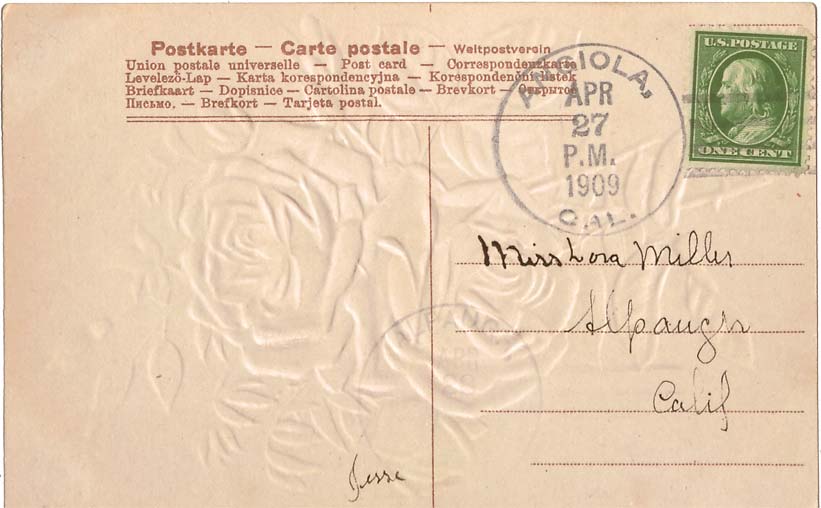 Postkarte — Carte postale — Weltpostverein
Union postale universelle — Post card — Correspondenzkarte
Levelező-Lap — Karta korespondencyjna — Korespondenční lístek
Briefkaart — Dopisnice — Cartolina postale — Brevkort — Открытое
Письмо. — Brefkort — Tarjeta postal.
ANGIOLA,
APR
27
P.M.
1909
CAL.
U.S. POSTAGE
ONE CENT
Miss Lora Miller
Alpaugh
Calif
ALPAUGH
APR
Jesse